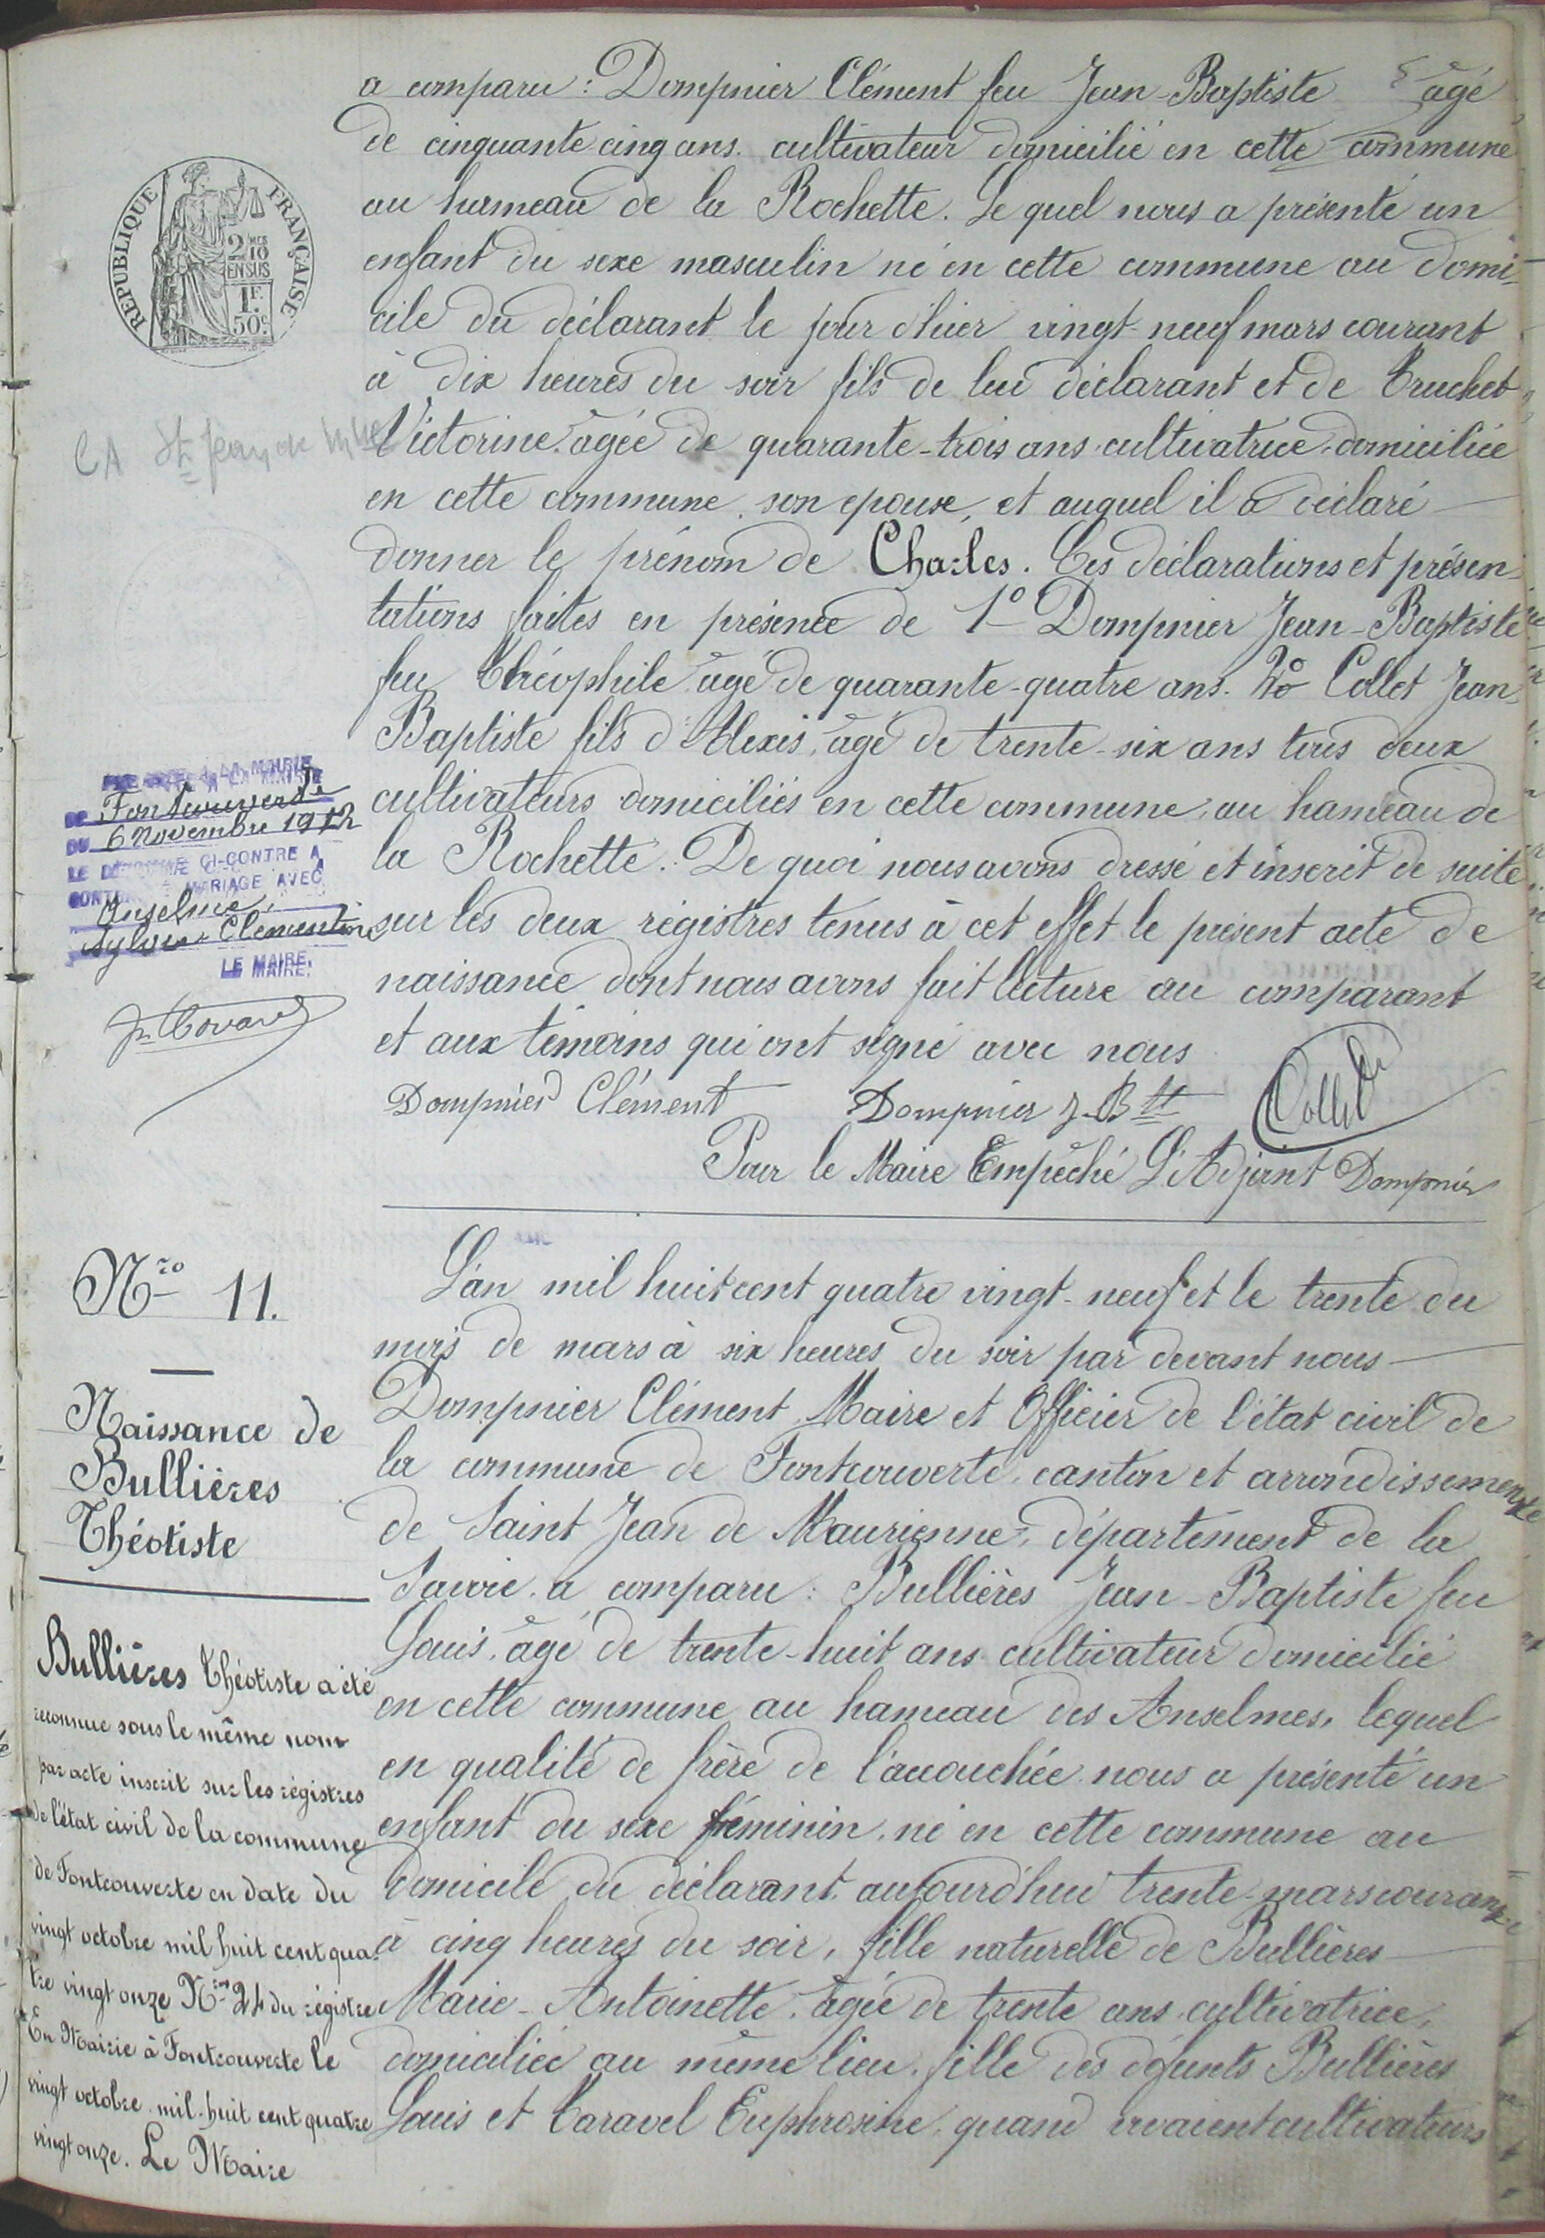 a comparu : Dompnier Clément feu Jean-Baptiste âgé
de cinquante cinq ans. cultivateur domicilié en cette commune
au hameau de la Rochette. Le quel nous a présenté un
enfant du sexe masculin né en cette commune au domi-
cile du déclarant le jour d'hier vingt-neuf mars courant
à dix heures du soir fils de lui déclarant et de Truchet
Victorine âgée de quarante-trois ans cultivatrice domiciliée
en cette commune, son epouse, et auquel il a déclaré
donner le prénom de Charles. Ces déclarations et présen-
tations faites en présence de 1° Dompnier Jean-Baptiste
feu Théophile âgé de quarante-quatre ans. 2° Collet Jean
Baptiste fils d'Alexis, âgé de trente-six ans tous deux
cultivateurs domiciliés en cette commune, au hameau de
la Rochette. De quoi nous avons dressé et inscrit de suite
sur les deux régistres tenus à cet effet le présent acte de
naissance dont nous avons fait lecture au comparant
et aux témoins qui ont signé avec nous
Dompnier Clément Dompnier J-Bte Collet
Pour le Maire Empêché L'Adjoint Dompnier
REPUBLIQUE FRANÇAISE
2/10
EN SUS
1F.
50c
CA St Jean de
A LA MAIRIE
DE Fontcouverte
DU 6 Novembre 1912
LE CI-CONTRE A
MARIAGE AVEC
Anselme,
Sylvie Clémentine
LE MAIRE,
Nro 11.
Naissance de
Bullières
Théotiste
L'an mil huit cent quatre vingt-neuf et le trente du
mois de mars à six heures du soir par devant nous
Dompnier Clément Maire et Officier de l'état civil de
la commune de Fontcouverte, canton et arrondissement
de Saint Jean de Maurienne, département de la
Savoie. a comparu : Bullières Jean-Baptiste feu
Louis, âgé de trente-huit ans cultivateur domicilié
en cette commune au hameau des Anselmes, lequel
en qualité de frère de l'accouchée nous a présenté un
enfant du sexe féminin, né en cette commune au
domicile du déclarant aujourd'hui trente mars courant
à cinq heures du soir, fille naturelle de Bullières
Marie-Antoinette, âgée de trente ans cultivatrice,
domiciliée au même lieu, fille des défunts Bullières
Louis et Caravel Euphrosine, quand vivaient cultivateurs
Bullières Théotiste a été
reconnue sous le même nom
par acte inscrit sur les régistres
de l'état civil de la commune
de Fontcouverte en date du
vingt octobre mil huit cent qua-
tre vingt onze Nro 24 du régistre
En Mairie à Fontcouverte le
vingt octobre mil-huit cent quatre
vingt onze. Le Maire